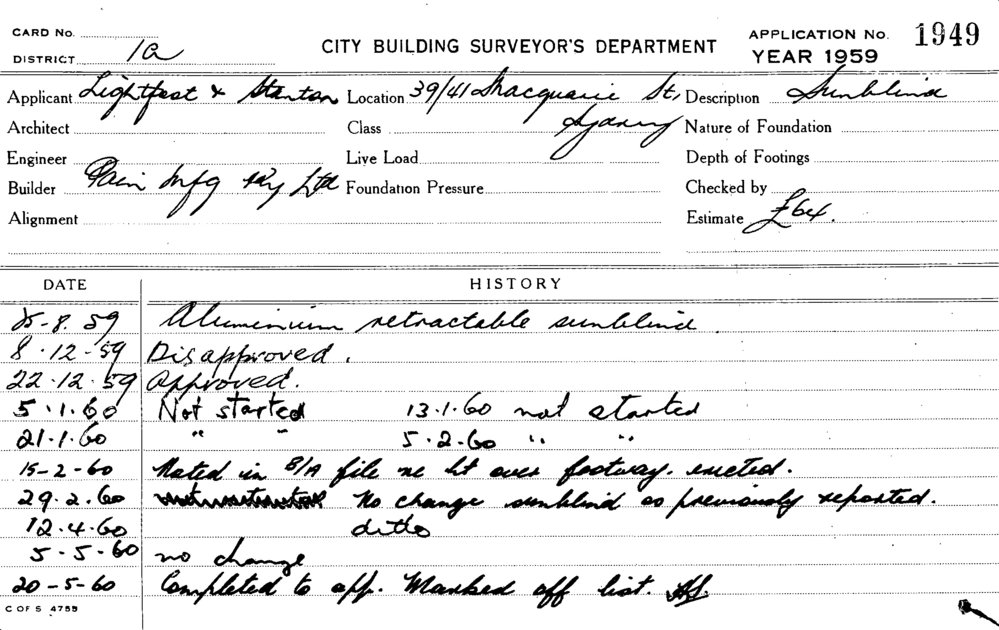 CARD No.
DISTRICT 1a
CITY BUILDING SURVEYOR'S DEPARTMENT
APPLICATION No. 1949
YEAR 1959
Applicant Lightfoot & Stanton Location 39/41 Macquarie St, Description Sunblind
Architect Class Sydney Nature of Foundation
Engineer Live Load Depth of Footings
Builder Pain Mfg Pty Ltd Foundation Pressure Checked by
Alignment Estimate £64.
DATE HISTORY
25-8.59 Aluminium retractable sunblind.
8.12-59 Disapproved.
22.12.59 Approved.
5.1.60 Not started 13.1.60 not started
21.1.60 " " 5.2.60 " "
15-2-60 Noted in B/A file re ht over footway. erected.
29.2.60 No change sunblind as previously reported.
12.4.60 ditto
5-5-60 no change
20-5-60 Completed to app. Marked off list.
C OF S 4755